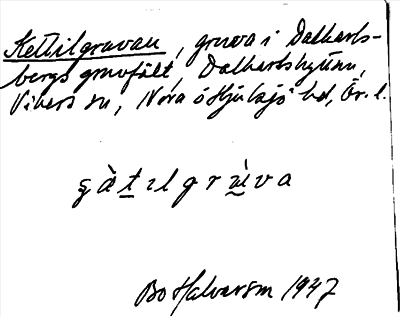 Kettilgruvan, gruva i Dalkarls-
bergs gruvfält, Dalkarlshyttan,
Vikers sn, Nora o Hjulsjö bd, Ör. l.
ʂàt̲ɪlgrù̲va
Bo Halvarson 1947